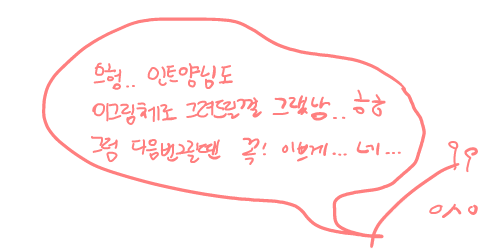 으헝.. 인트양님도
이그림체로 그려드릴껄 그랬낭.. ㅎㅎ
그럼 다음번그릴땐 꼭! 이쁘게... 네...